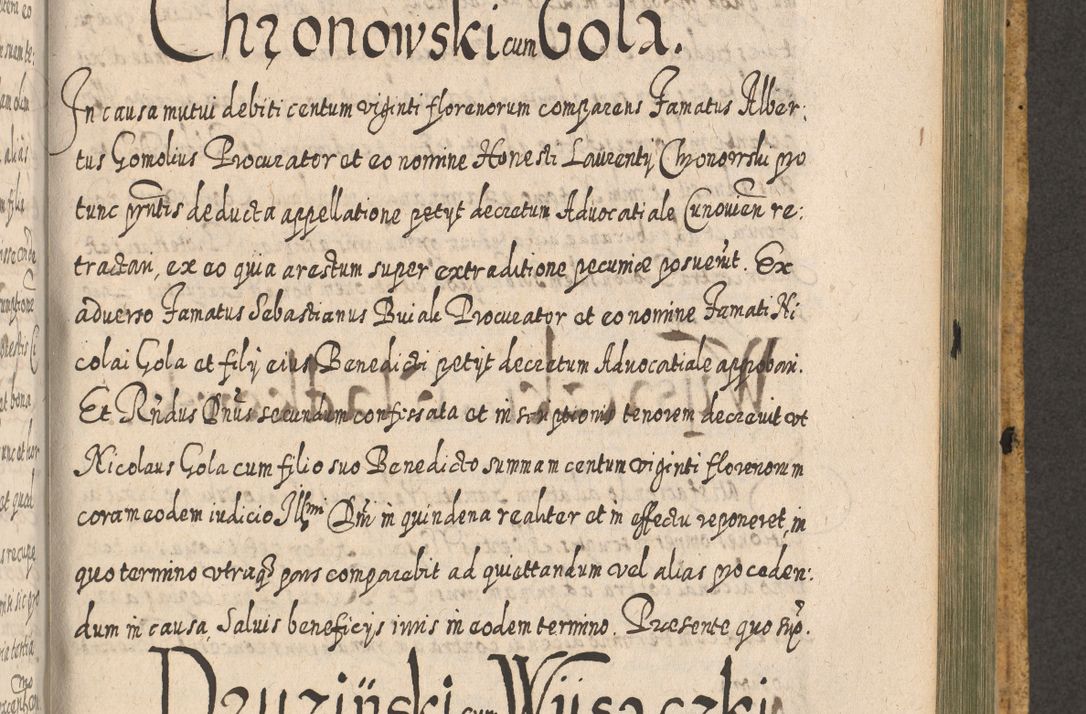 Chronowski cum Gola.
In causa mutui debiti centum viginti florenorum comparens Famatus Alber:
tus Gomolius Procurator et eo nomine Honesti Laurentÿ Chronowski pro
tunc pñtis deducta appellatione petÿt decretum Advocatiale Cunovien̄ re:
tractari, ex eo quia arestum super extraditione pecuniæ posuerit. Ex
adverso Famatus Sebastianus Buiak Procurator et eo nomine Famati Ni
colai Gola et filÿ eius Benedicti petÿt decretum Advocatiale approbari.
Et Rñdus Dñus secundum confessata et inscriptionis tenorem decrevit ut
Nicolaus Gola cum filio suo Benedicto summam centum viginti florenorum
coram eodem iudicio Illmi Dñi in quindena realiter et in effectu reponeret, in
quo termino utraq3 pars comparebit ad quiettandum vel alias proceden:
dum in causa, Salvis beneficÿs iuris in eodem termino. Præsente quo sup.
Druziński cum Wÿsaczki